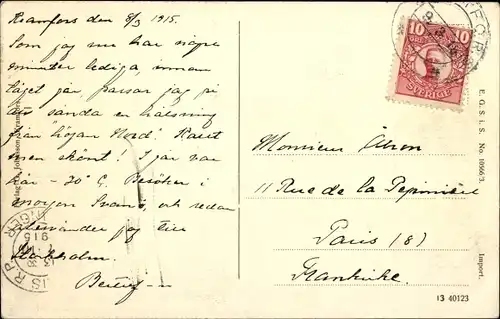 Kramfors den 8/3 1915.
Som jag nu har några
minuter lediga, innan
tåget går, passar jag på
att sända en hälsning
från höjan Nord! Kallt
men skönt! I går var
här - 30° C. Besöker i
morgon Svanö, och sedan
återvänder jag till
Stockholm.
10 10
SVERIGE
Monsieur
11 Rue de la Pépinière
Paris (8)
Frankrike.
E. G. S. i. S. No. 10566/3.
Import.
13 40123